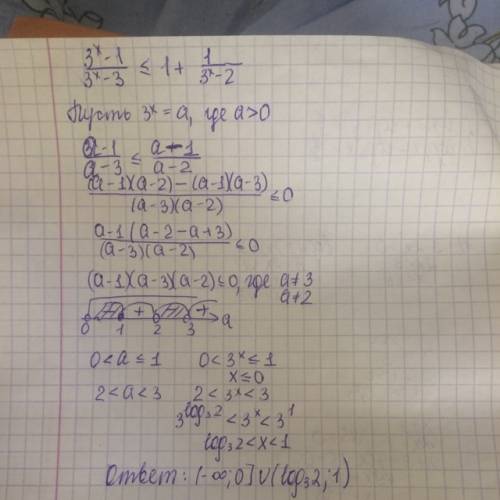 (3^x - 1)/(3^x - 3) ≤ 1 + 1/(3^x - 2)
Пусть 3^x = a, где a > 0
(a - 1)/(a - 3) ≤ (a - 1)/(a - 2)
((a - 1)(a - 2) - (a - 1)(a - 3))/((a - 3)(a - 2)) ≤ 0
(a - 1(a - 2 - a + 3))/((a - 3)(a - 2)) ≤ 0
(a - 1)(a - 3)(a - 2) ≤ 0, где a ≠ 3
a ≠ 2
+ +
0 1 2 3 a
0 < a ≤ 1 0 < 3^x ≤ 1
x ≤ 0
2 < a < 3 2 < 3^x < 3
3^(log₃2) < 3^x < 3^1
log₃2 < x < 1
Ответ: (-∞; 0] ∪ (log₃2; 1)